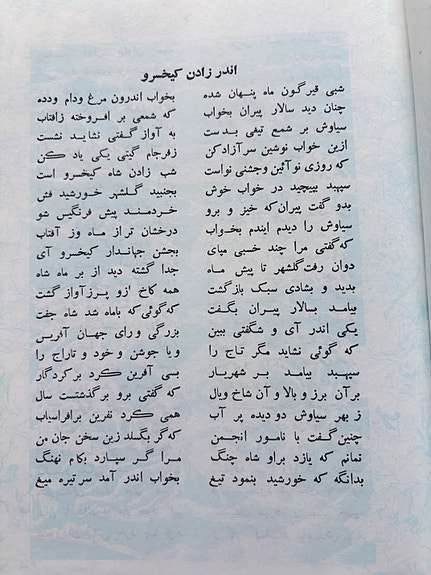 اندر زادن کیخسرو
شبی قیرگون ماه پنهان شده بخواب اندرون مرغ ودام ودده
چنان دید سالار پیران بخواب که شمعی بر افروخته زافتاب
سیاوش بر شمع تیغی بدست به آواز گفتی نشاید نشست
ازین خواب نوشین سرآزادکن زفرجام گیتی یکی یاد کن
که روزی نوآئین وجشنی نواست شب زادن شاه کیخسرو است
سپهبد بپیچید در خواب خوش بجنبید گلشهر خورشید فش
بدو گفت پیران که خیز و برو خردمند پیش فرنگیس شو
سیاوش را دیدم ایندم بخواب درخشان تر از ماه وز آفتاب
که گفتی مرا چند خسبی مپای بجشن جهاندار کیخسرو آی
دوان رفت گلشهر تا پیش ماه جدا گشته دید از بر ماه شاه
بدید و بشادی سبک بازگشت همه کاخ ازو پرزآواز گشت
بیامد بسالار پیران بگفت که گوئی که باماه شد شاه جفت
یکی اندر آی و شگفتی ببین بزرگی و رای جهان آفرین
که گوئی نشاید مگر تاج را و یا جوشن و خود و تاراج را
سپهبد بیامد بر شهریار بسی آفرین کرد بر کردگار
بر آن برز و بالا و آن شاخ ویال که گفتی برو بر گذشتست سال
ز بهر سیاوش دو دیده پر آب همی کرد نفرین بر افراسیاب
چنین گفت با نامور انجمن که گر بگسلد زین سخن جان من
نمانم که یازد براو شاه چنگ مرا گر سپارد بکام نهنگ
بدانگه که خورشید بنمود تیغ بخواب اندر آمد سر تیره میغ